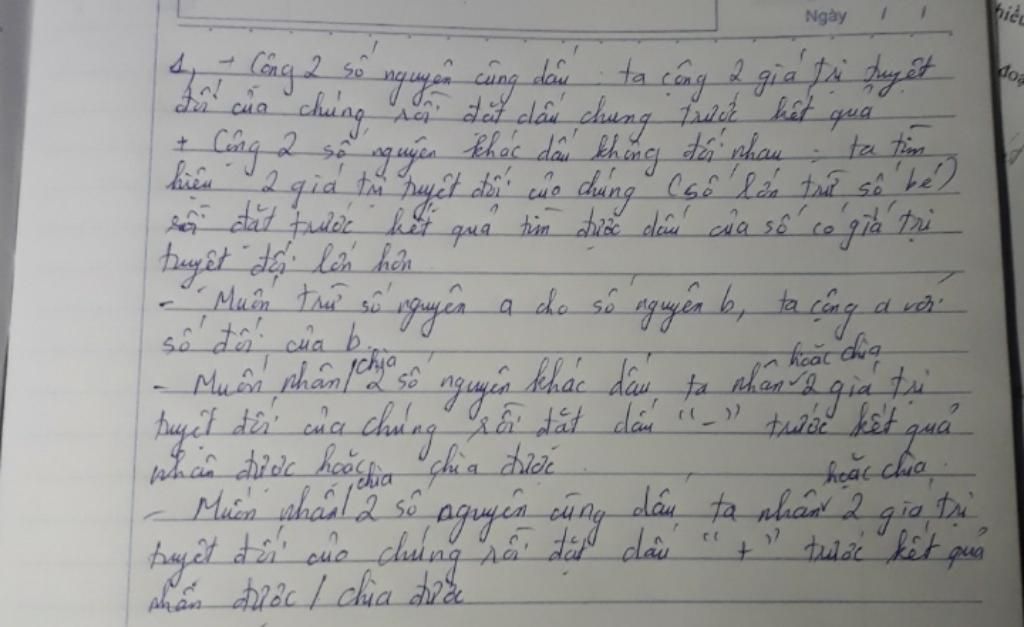 Ngày / /
hiểu
đoạ
1, + Cộng 2 số nguyên cùng dấu : ta cộng 2 giá trị tuyệt
đối của chúng rồi đặt dấu chung trước kết quả
+ Cộng 2 số nguyên khác dấu không đối nhau : ta tìm
hiệu 2 giá trị tuyệt đối của chúng (số lớn trừ số bé)
rồi đặt trước kết quả tìm được dấu của số có giá trị
tuyệt đối lớn hơn
- Muốn trừ số nguyên a cho số nguyên b, ta cộng a với
số đối của b.
- Muốn nhân / chia 2 số nguyên khác dấu, ta nhân hoặc chia 2 giá trị
tuyệt đối của chúng rồi đặt dấu "-" trước kết quả
nhân được hoặc chia được
- Muốn nhân / chia 2 số nguyên cùng dấu, ta nhân hoặc chia 2 giá trị
tuyệt đối của chúng rồi đặt dấu "+" trước kết quả
nhân được / chia được